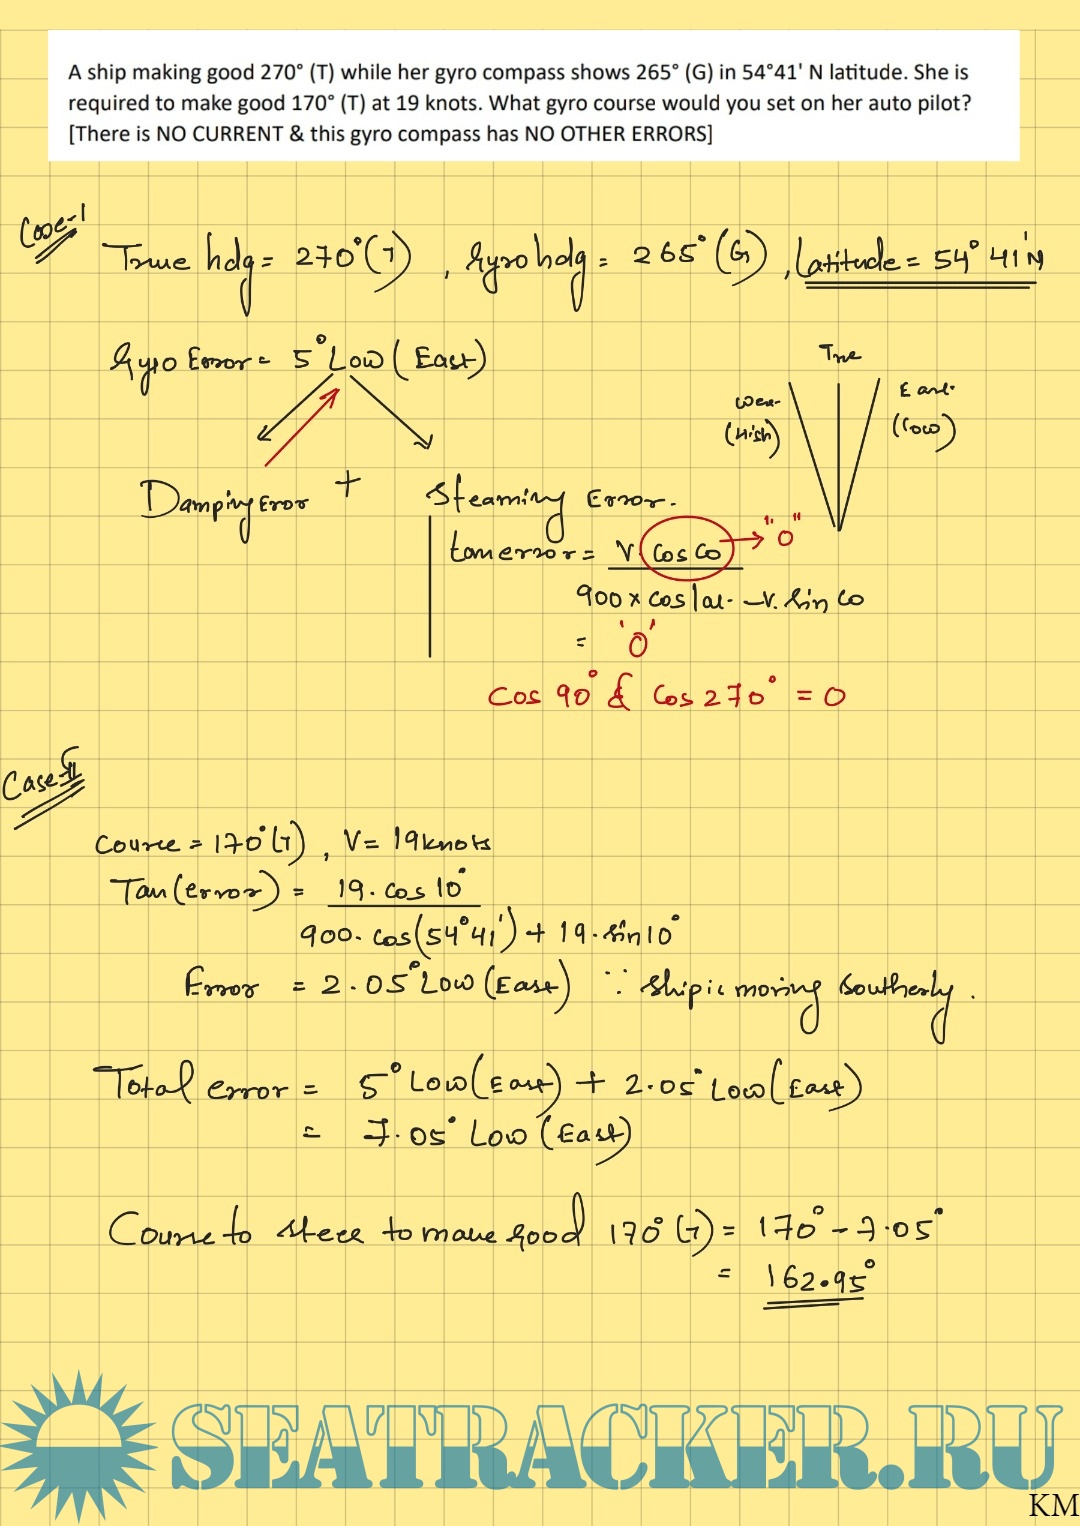 A ship making good 270° (T) while her gyro compass shows 265° (G) in 54°41' N latitude. She is
required to make good 170° (T) at 19 knots. What gyro course would you set on her auto pilot?
[There is NO CURRENT & this gyro compass has NO OTHER ERRORS]
Case-I
True hdg = 270°(T), Gyro hdg = 265°(G), Latitude = 54° 41' N
Gyro Error = 5° Low (East)
True
West
(High)
East
(Low)
Damping Error + Steaming Error.
tan error = V. Cos Co → "0"
900 x cos lat - V. Sin Co
= '0'
Cos 90° & Cos 270° = 0
Case II
Course = 170°(T), V = 19 knots
Tan (error) = 19. cos 10°
900. cos(54°41') + 19. sin 10°
Error = 2.05° Low (East) ∵ ship is moving Southerly.
Total error = 5° Low (East) + 2.05° Low (East)
= 7.05° Low (East)
Course to steer to make good 170° (T) = 170° - 7.05°
= 162.95°
SEATRACKER.RU
KM